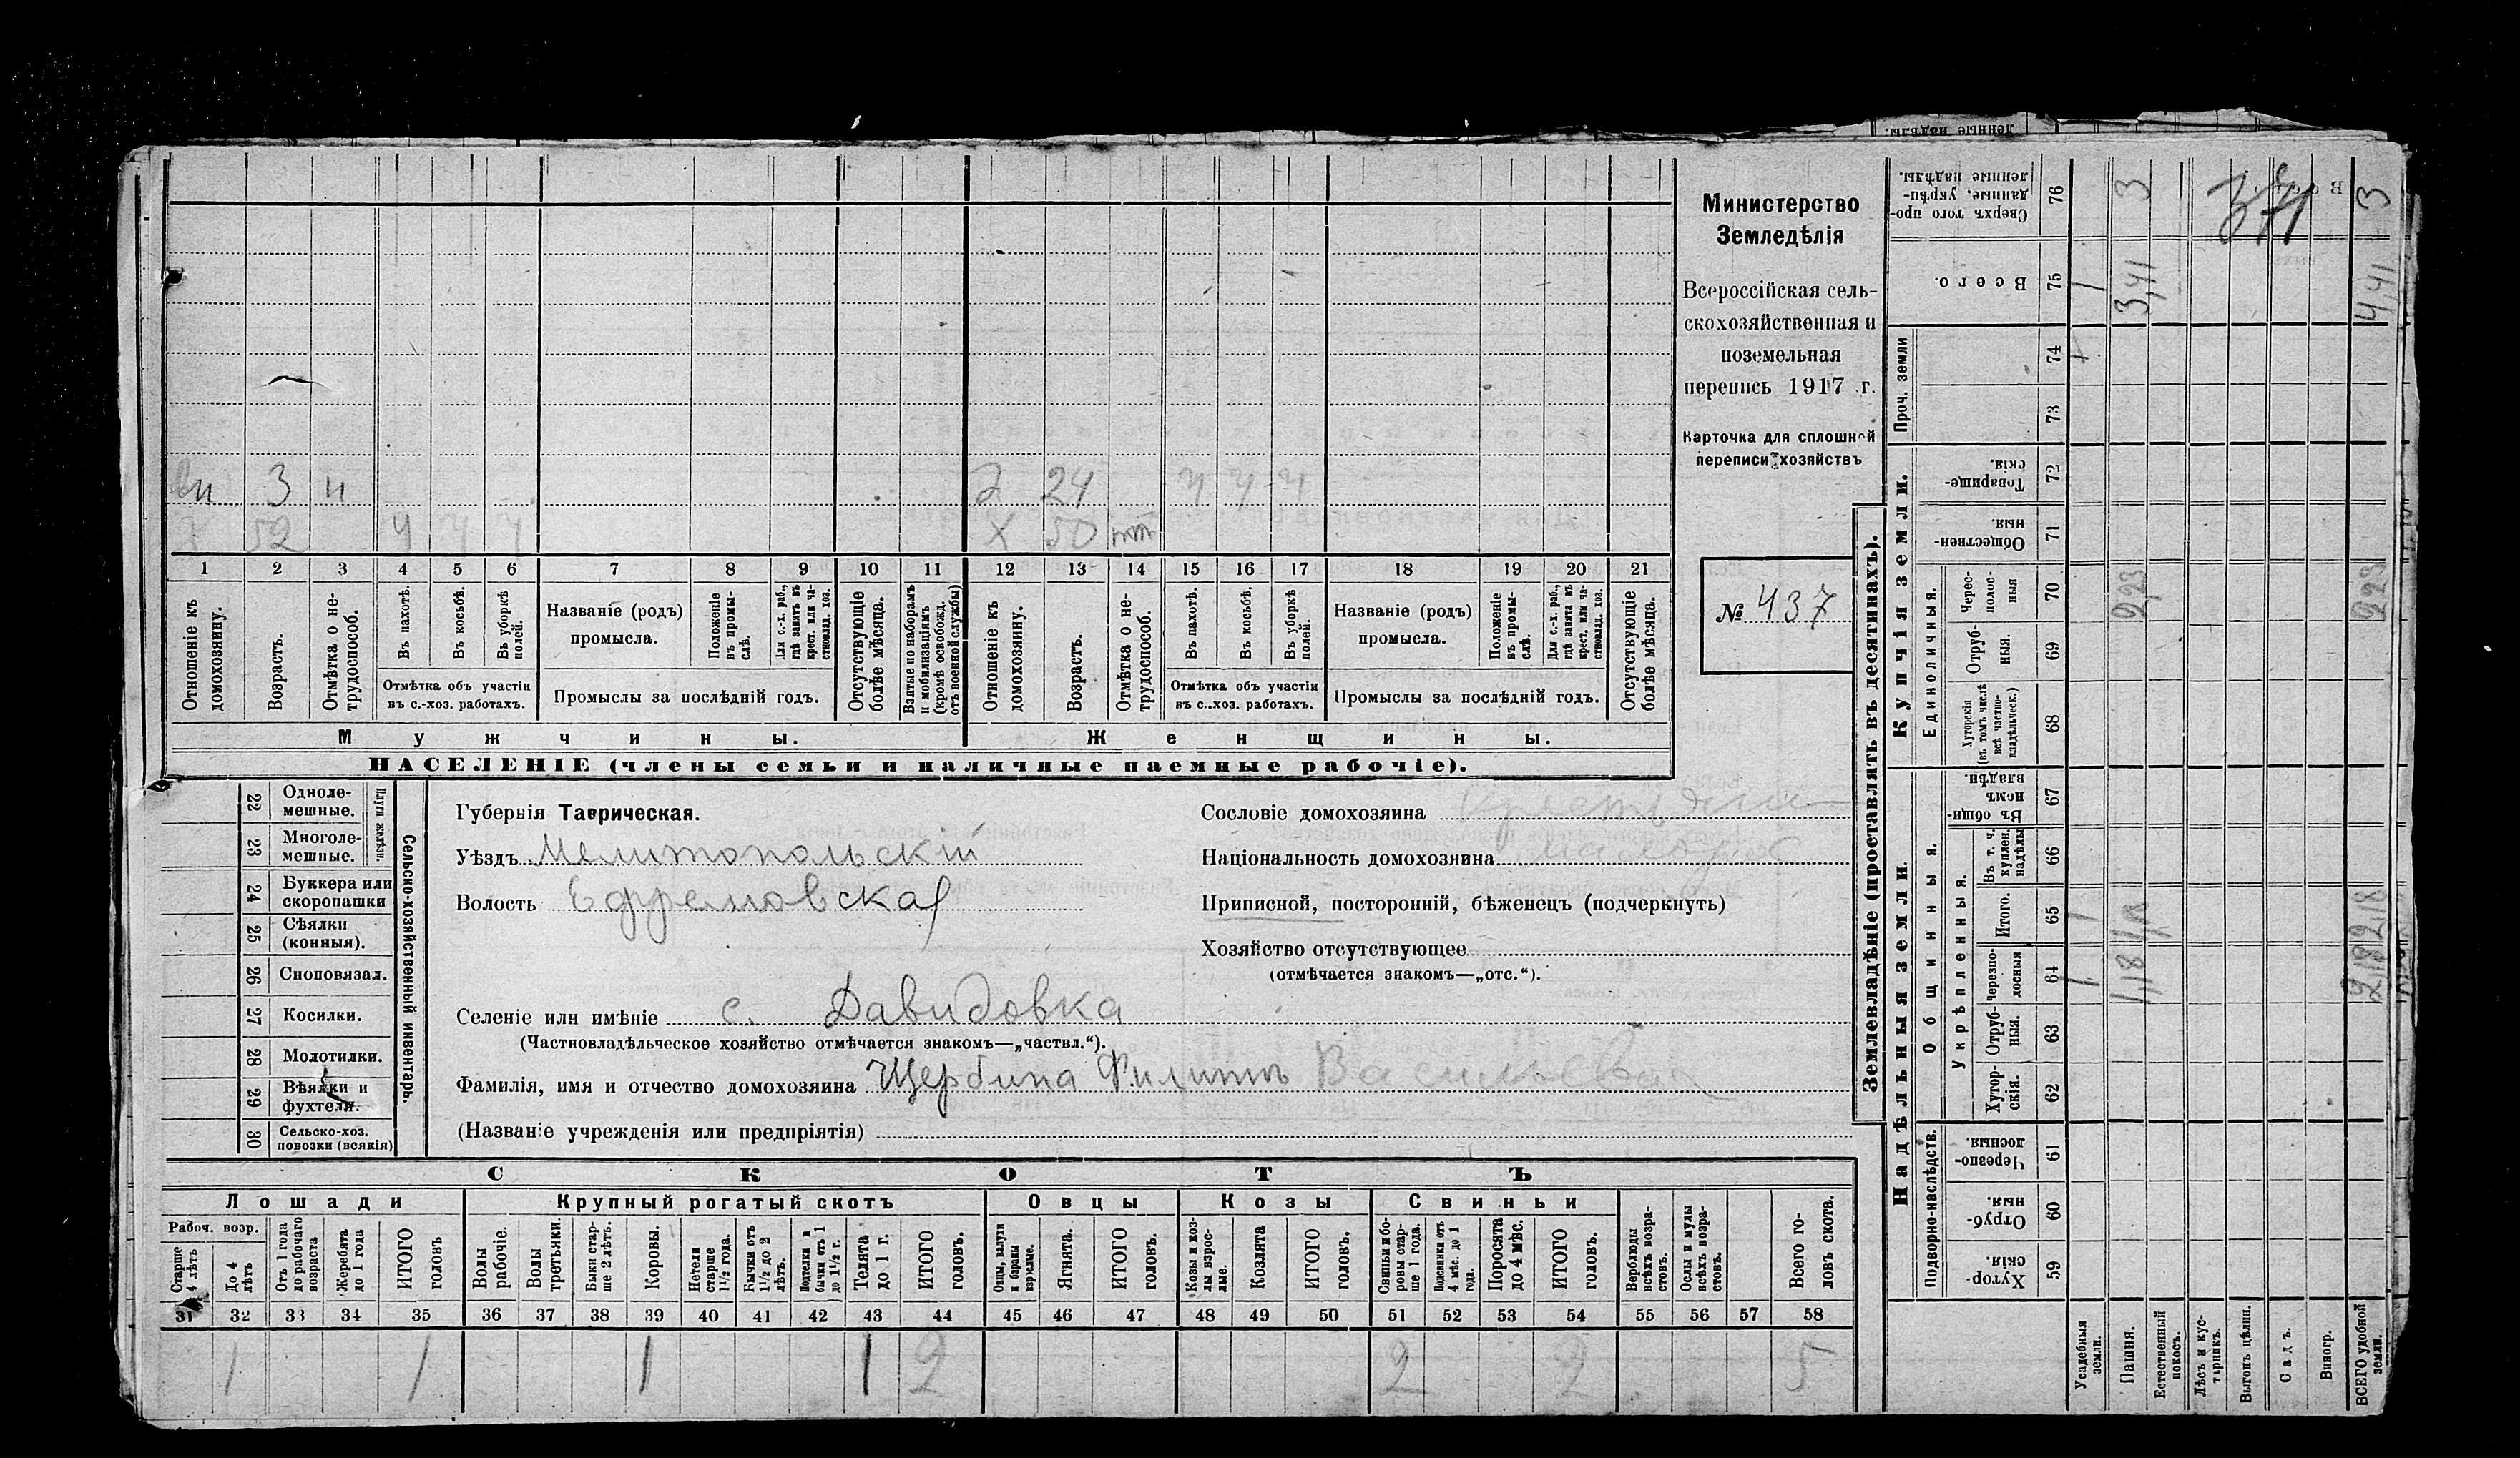 Министерство
Земледѣлія
Всероссійская сель-
скохозяйственная и
поземельная
перепись 1917 г.
Карточка для сплошной
переписи хозяйствъ
№ 437
вн 3 н
2 24 ч ч ч
х 52 ч ч ч
х 50
1 2 3 4 5 6 7 8 9 10 11 12 13 14 15 16 17 18 19 20 21
Отношеніе къ домохозяину.
Возрастъ.
Отмѣтка о не-трудоспособ.
Въ пахотѣ.
Въ косьбѣ.
Въ уборкѣ полей.
Отмѣтка объ участіи
въ с.-хоз. работахъ.
Названіе (родъ)
промысла.
Положеніе въ промы-слѣ.
Для с.-х. раб., гдѣ занятъ въ крест. или ча-стновлад. хоз.
Промыслы за послѣдній годъ.
Отсутствующіе болѣе мѣсяца.
Взятые по наборамъ и мобилизаціямъ (кромѣ освобожд. отъ военной службы)
Отношеніе къ домохозяину.
Возрастъ.
Отмѣтка о не-трудоспособ.
Въ пахотѣ.
Въ косьбѣ.
Въ уборкѣ полей.
Отмѣтка объ участіи
въ с..хоз. работахъ.
Названіе (родъ)
промысла.
Положеніе въ промы-слѣ.
Для с.-х. раб., гдѣ занята въ крест. или ча-стновлад. хоз.
Промыслы за послѣдній годъ.
Отсутствующіе болѣе мѣсяца.
Мужчины.
Женщины.
НАСЕЛЕНІЕ (члены семьи и наличные наемные рабочіе).
22 Одноле-мешные.
23 Многоле-мешные.
Плуги желѣзн.
24 Буккера или скоропашки
25 Сѣялки (конныя).
26 Сноповязал.
27 Косилки.
28 Молотилки.
29 Вѣялки и фухтеля.
30 Сельско-хоз. повозки (всякія)
Сельско-хозяйственный инвентарь.
Губернія Таврическая.
Уѣздъ Мелитопольскій
Волость Ефремовская
Селеніе или имѣніе с. Давидовка
(Частновладѣльческое хозяйство отмѣчается знакомъ—„частвл.“).
Фамилія, имя и отчество домохозяина Щербина Филиппъ Васильевич
(Названіе учрежденія или предпріятія)
Сословіе домохозяина крестьянин
Національность домохозяина малорос
Приписной, посторонній, бѣженецъ (подчеркнуть)
Хозяйство отсутствующее
(отмѣчается знакомъ—„отс.“).
СКОТЪ
Лошади
Крупный рогатый скотъ
Овцы
Козы
Свиньи
Рабоч. возр.
Старше 4 лѣтъ
До 4 лѣтъ
Отъ 1 года до рабочаго возраста
Жеребята до 1 года
ИТОГО головъ
Волы рабочіе.
Волы третьяки.
Быки стар-ше 2 лѣтъ.
Коровы.
Нетели старше 1½ года.
Бычки отъ 1½ до 2 лѣтъ.
Подтелки и бычки отъ 1 до 1½ г.
Телята до 1 г.
ИТОГО головъ.
Овцы, валухи и бараны взрослые.
Ягнята.
ИТОГО головъ.
Козы и коз-лы взрос-лые.
Козлята
ИТОГО головъ.
Свиньи и бо-ровы стар-ше 1 года.
Подсвинки отъ 4 мѣс. до 1 года.
Поросята до 4 мѣс.
ИТОГО головъ.
Верблюды всѣхъ возра-стовъ.
Ослы и мулы всѣхъ возра-стовъ.
Всего го-ловъ скота.
31 32 33 34 35 36 37 38 39 40 41 42 43 44 45 46 47 48 49 50 51 52 53 54 55 56 57 58
1 1 1 1 2 2 2 5
Землевладѣніе (проставлять въ десятинахъ).
Надѣльныя земли.
Купчія земли.
Проч. земли
Подворно-наслѣдств.
Общинныя.
Укрѣпленныя.
Единоличныя.
59 Хутор-скія.
60 Отруб-ныя.
61 Черезпо-лосныя.
62 Хутор-скія.
63 Отруб-ныя.
64 черезпо-лосныя
65 Итого.
66 Въ т. ч. куплен. надѣлы
67 Въ общи-номъ владѣн.
68 Хуторскія (въ томъ числѣ всѣ частно-владѣльческ.)
69 Отруб-ныя.
70 Черес-полос-ныя
71 Обществен-ныя.
72 Товарище-скія.
73
74
75 Всего.
76 Сверхъ того про-данные, укрѣп-ленные надѣлы.
Усадебныя земли.
Пашня.
Естественный покосъ.
Лѣсъ и кус-тарникъ.
Выгонъ цѣлин.
Садъ.
Виногр.
ВСЕГО удобной земли.
1 1,18 2,18
1 2,18
2,23 2,23
1 3,41 4,41
3 3
371
ленные надѣлы.